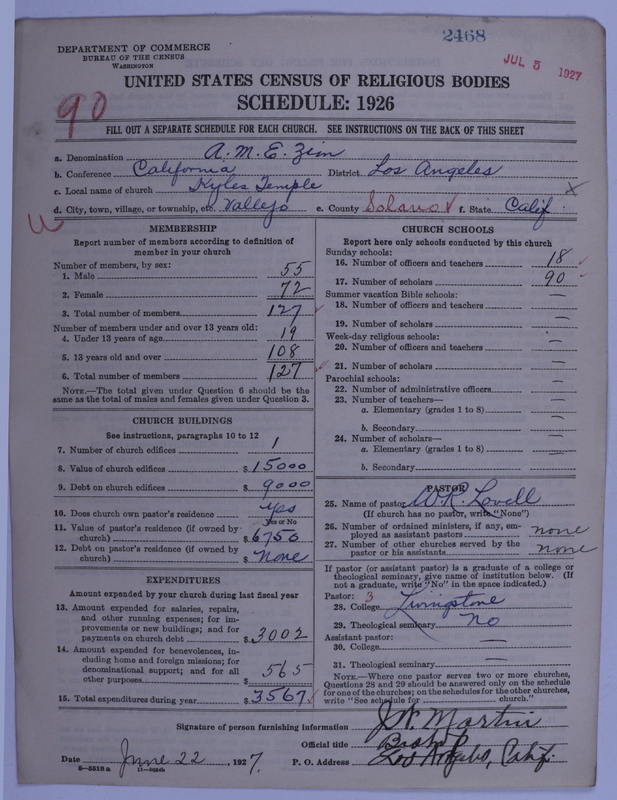 2468
JUL 5 1927
DEPARTMENT OF COMMERCE
BUREAU OF THE CENSUS
WASHINGTON
UNITED STATES CENSUS OF RELIGIOUS BODIES
SCHEDULE: 1926
90
FILL OUT A SEPARATE SCHEDULE FOR EACH CHURCH. SEE INSTRUCTIONS ON THE BACK OF THIS SHEET
a. Denomination A. M. E. Zion
b. Conference California District Los Angeles
c. Local name of church Kyles Temple
d. City, town, village, or township, etc. Vallejo e. County Solano f. State Calif.
MEMBERSHIP
Report number of members according to definition of
member in your church
Number of members, by sex:
1. Male 55
2. Female 72
3. Total number of members 127
Number of members under and over 13 years old:
4. Under 13 years of age 19
5. 13 years old and over 108
6. Total number of members 127
NOTE.—The total given under Question 6 should be the
same as the total of males and females given under Question 3.
CHURCH BUILDINGS
See instructions, paragraphs 10 to 12
7. Number of church edifices 1
8. Value of church edifices $ 15000
9. Debt on church edifices $ 9000
10. Does church own pastor's residence yes
Yes or No
11. Value of pastor's residence (if owned by
church) $ 6750
12. Debt on pastor's residence (if owned by
church) $ None
EXPENDITURES
Amount expended by your church during last fiscal year
13. Amount expended for salaries, repairs,
and other running expenses; for im-
provements or new buildings; and for
payments on church debt $ 3002
14. Amount expended for benevolences, in-
cluding home and foreign missions; for
denominational support; and for all
other purposes $ 565
15. Total expenditures during year $ 3567
CHURCH SCHOOLS
Report here only schools conducted by this church
Sunday schools:
16. Number of officers and teachers 18
17. Number of scholars 90
Summer vacation Bible schools:
18. Number of officers and teachers —
19. Number of scholars —
Week-day religious schools:
20. Number of officers and teachers —
21. Number of scholars —
Parochial schools:
22. Number of administrative officers —
23. Number of teachers—
a. Elementary (grades 1 to 8) —
b. Secondary —
24. Number of scholars—
a. Elementary (grades 1 to 8) —
b. Secondary —
PASTOR
25. Name of pastor W. R. Lovell
(If church has no pastor, write "None")
26. Number of ordained ministers, if any, em-
ployed as assistant pastors none
27. Number of other churches served by the
pastor or his assistants none
If pastor (or assistant pastor) is a graduate of a college or
theological seminary, give name of institution below. (If
not a graduate, write "No" in the space indicated.)
Pastor: 3
28. College Livingstone
29. Theological seminary No
Assistant pastor:
30. College —
31. Theological seminary —
NOTE.—Where one pastor serves two or more churches,
Questions 28 and 29 should be answered only on the schedule
for one of the churches; on the schedules for the other churches,
write "See schedule for church."
Signature of person furnishing information J. W. Martin
Official title Bishop
Date June 22, 1927. P. O. Address Los Angeles, Calif.
8—5518 a